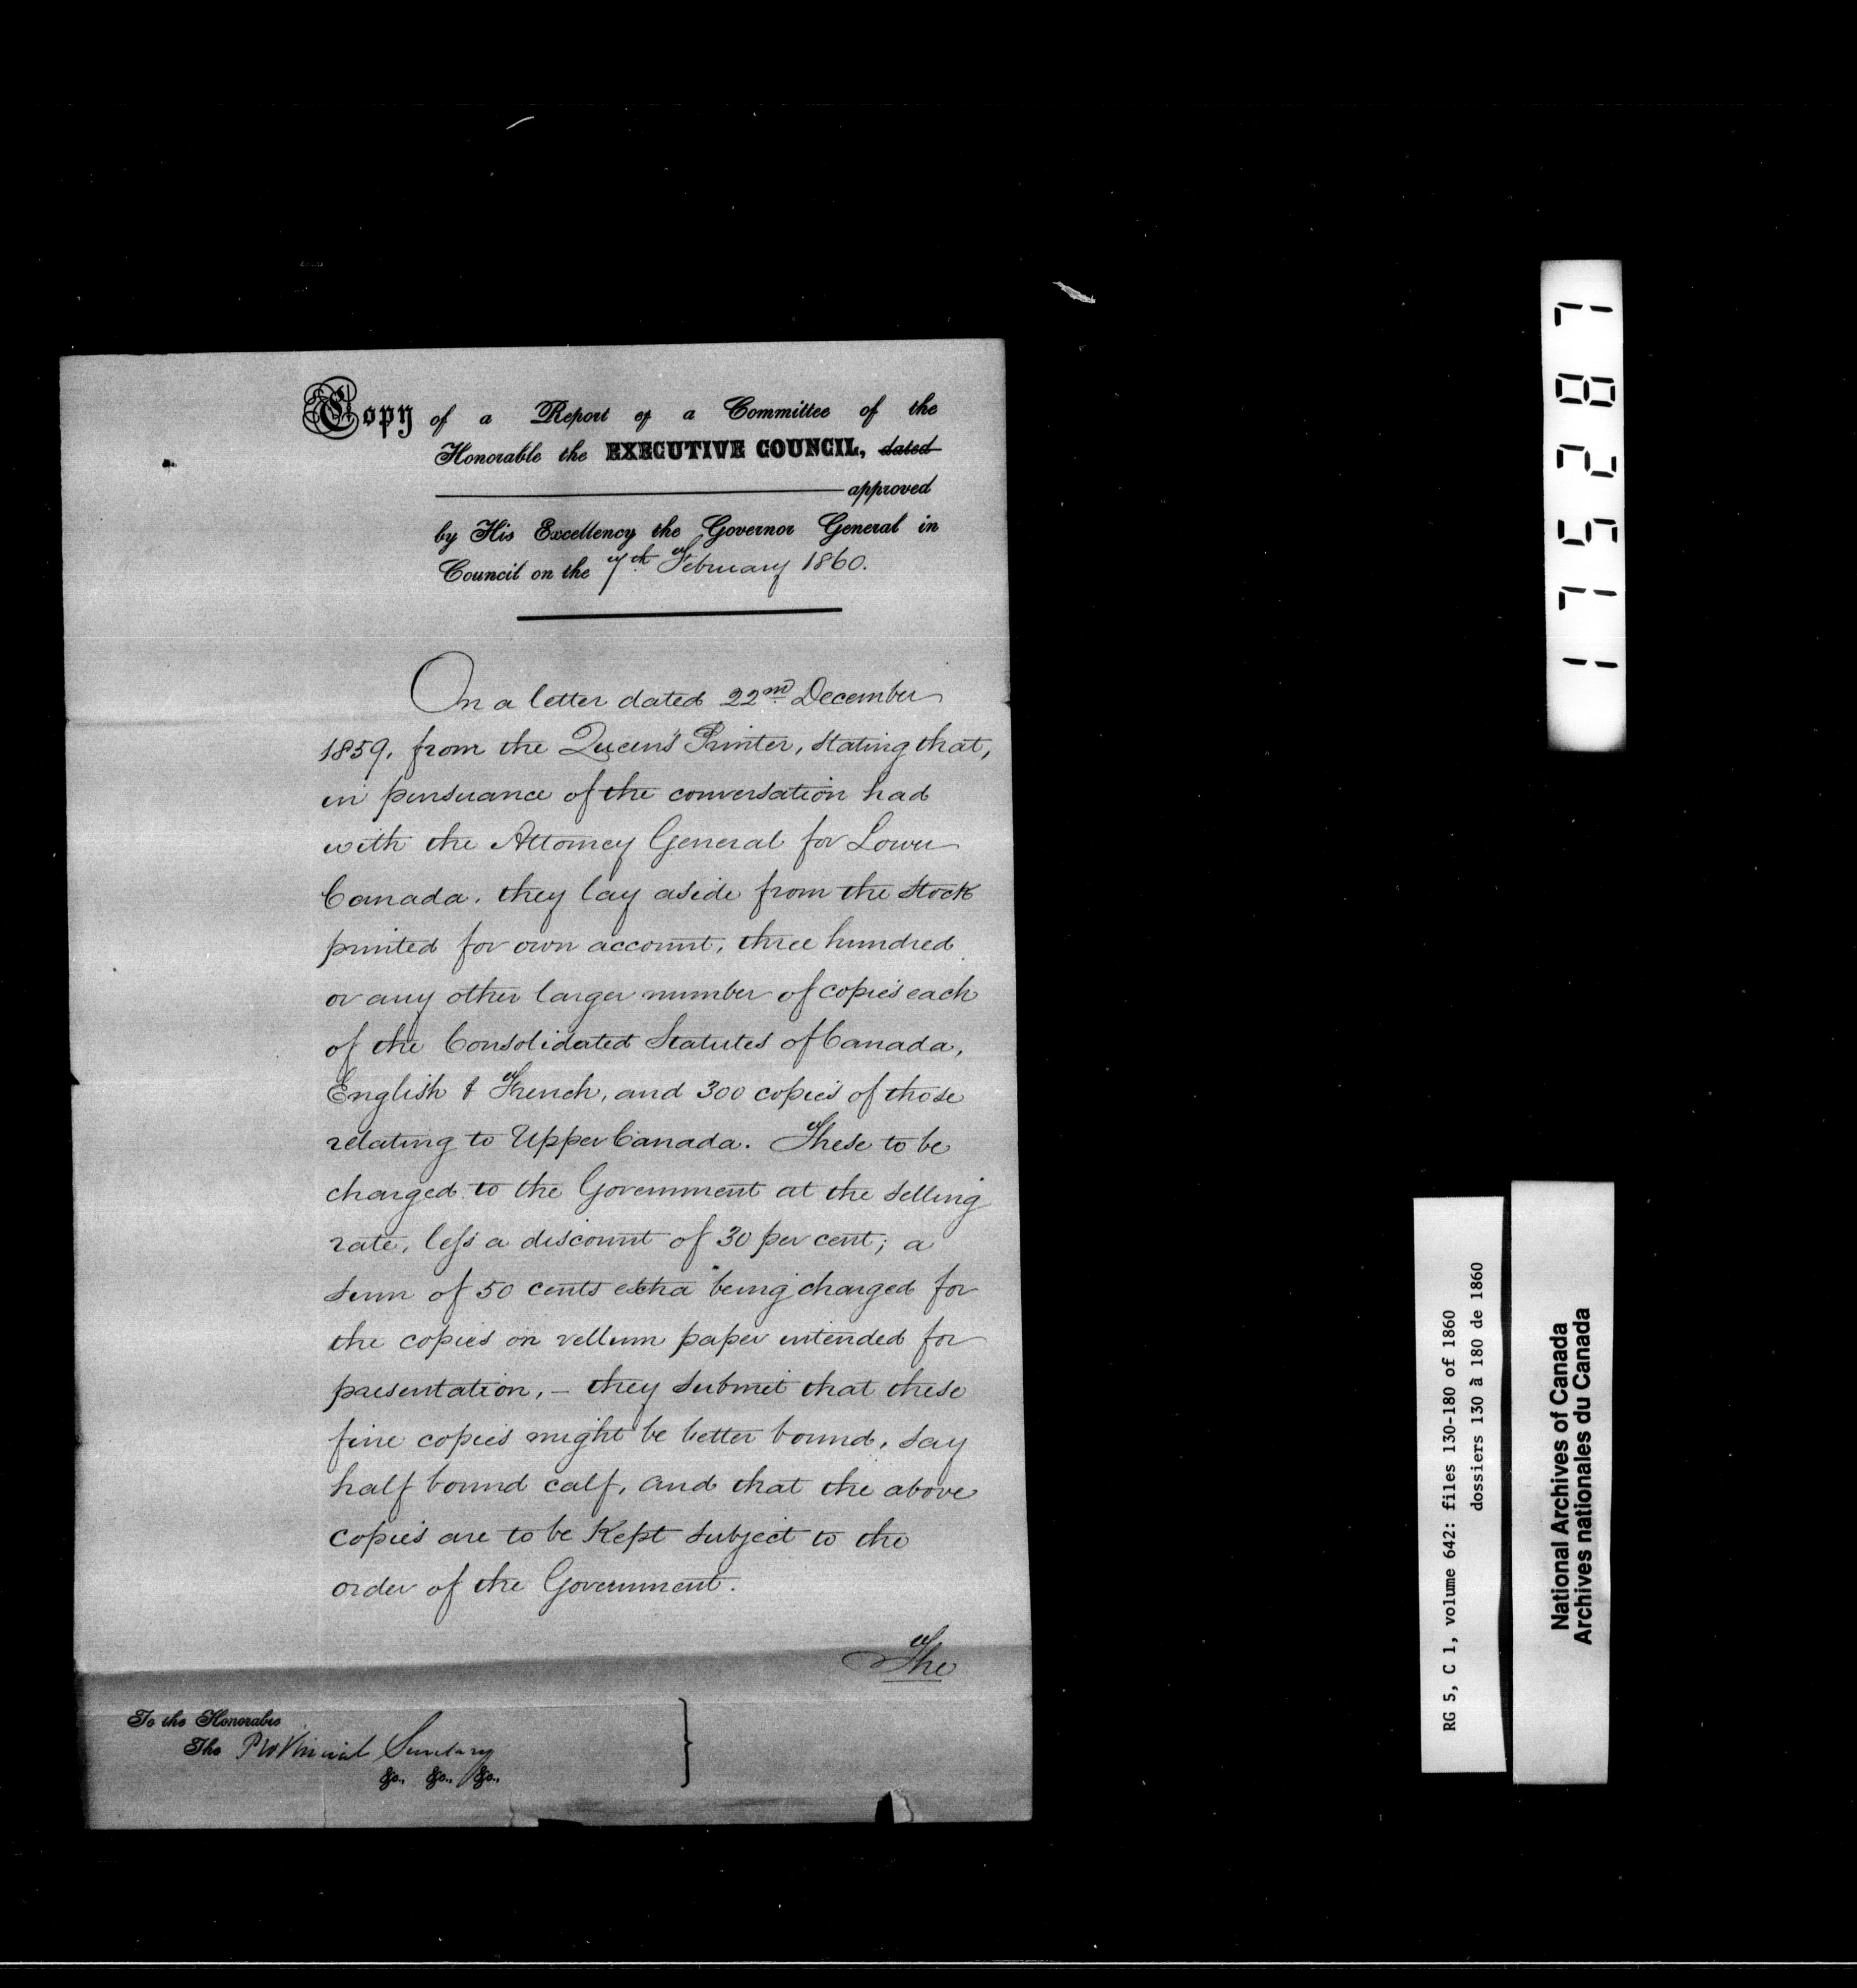 Copy of a Report of a Committee of the
Honorable the EXECUTIVE COUNCIL, dated
approved
by His Excellency the Governor General in
Council on the 7th February 1860.
On a letter dated 22nd December
1859, from the Queen's Printer, stating that,
in pursuance of the conversation had
with the Attorney General for Lower
Canada, they lay aside from the stock
printed for own account, three hundred
or any other larger number of copies each
of the Consolidated Statutes of Canada,
English & French, and 300 copies of those
relating to Upper Canada. These to be
charged to the Government at the selling
rate, less a discount of 30 per cent; a
sum of 50 cents extra being charged for
the copies on vellum paper intended for
presentation, – they submit that these
fine copies might be better bound, say
half bound calf, and that the above
copies are to be Kept subject to the
order of the Government.
The
To the Honorable
The Provincial Secretary
&c., &c., &c.,
175287
RG 5, C 1, volume 642: files 130-180 of 1860
dossiers 130 à 180 de 1860
National Archives of Canada
Archives nationales du Canada